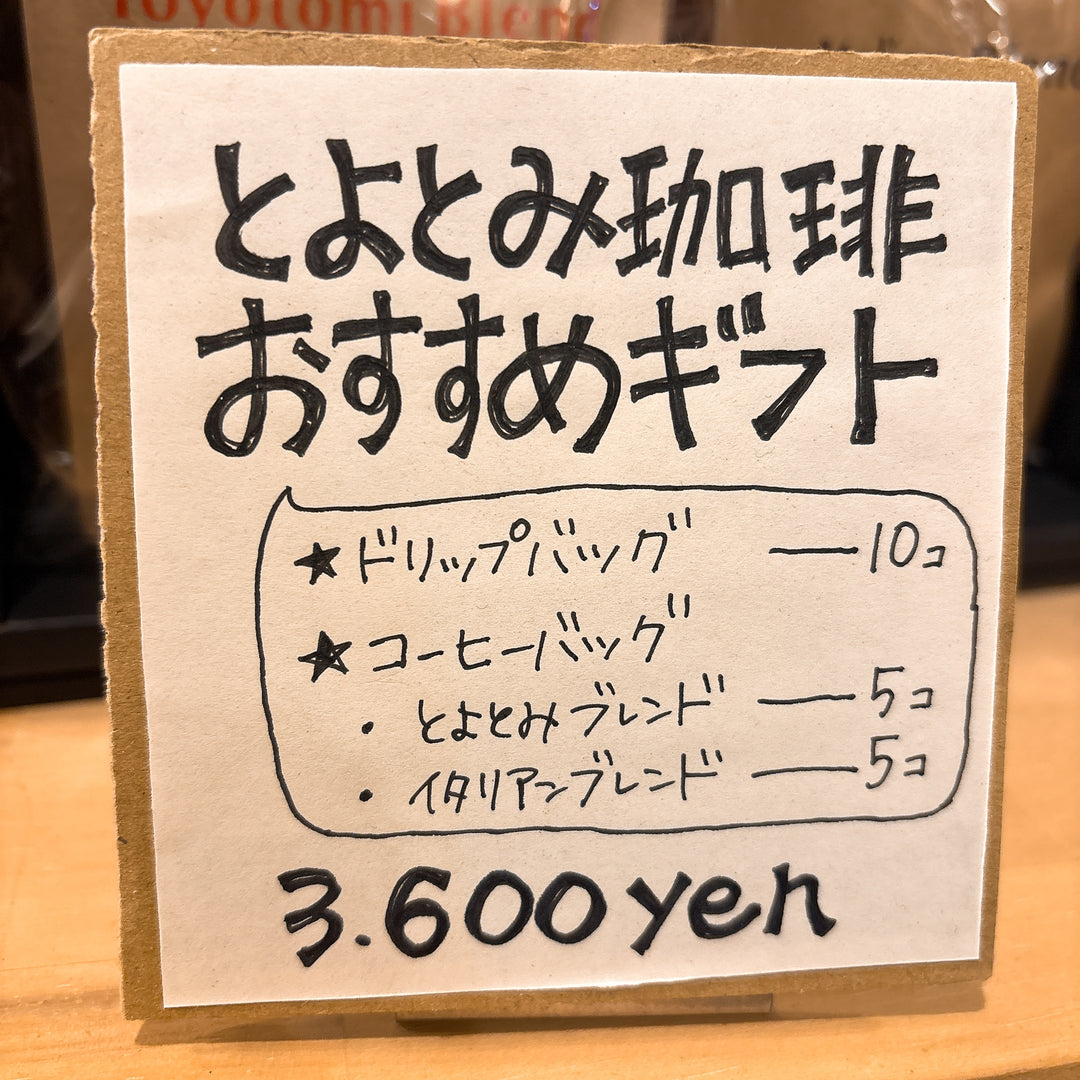 Toyotomi Blend
とよとみ珈琲
おすすめギフト
★ドリップバッグ ― 10コ
★コーヒーバッグ
・とよとみブレンド ― 5コ
・イタリアンブレンド ― 5コ
3.600yen